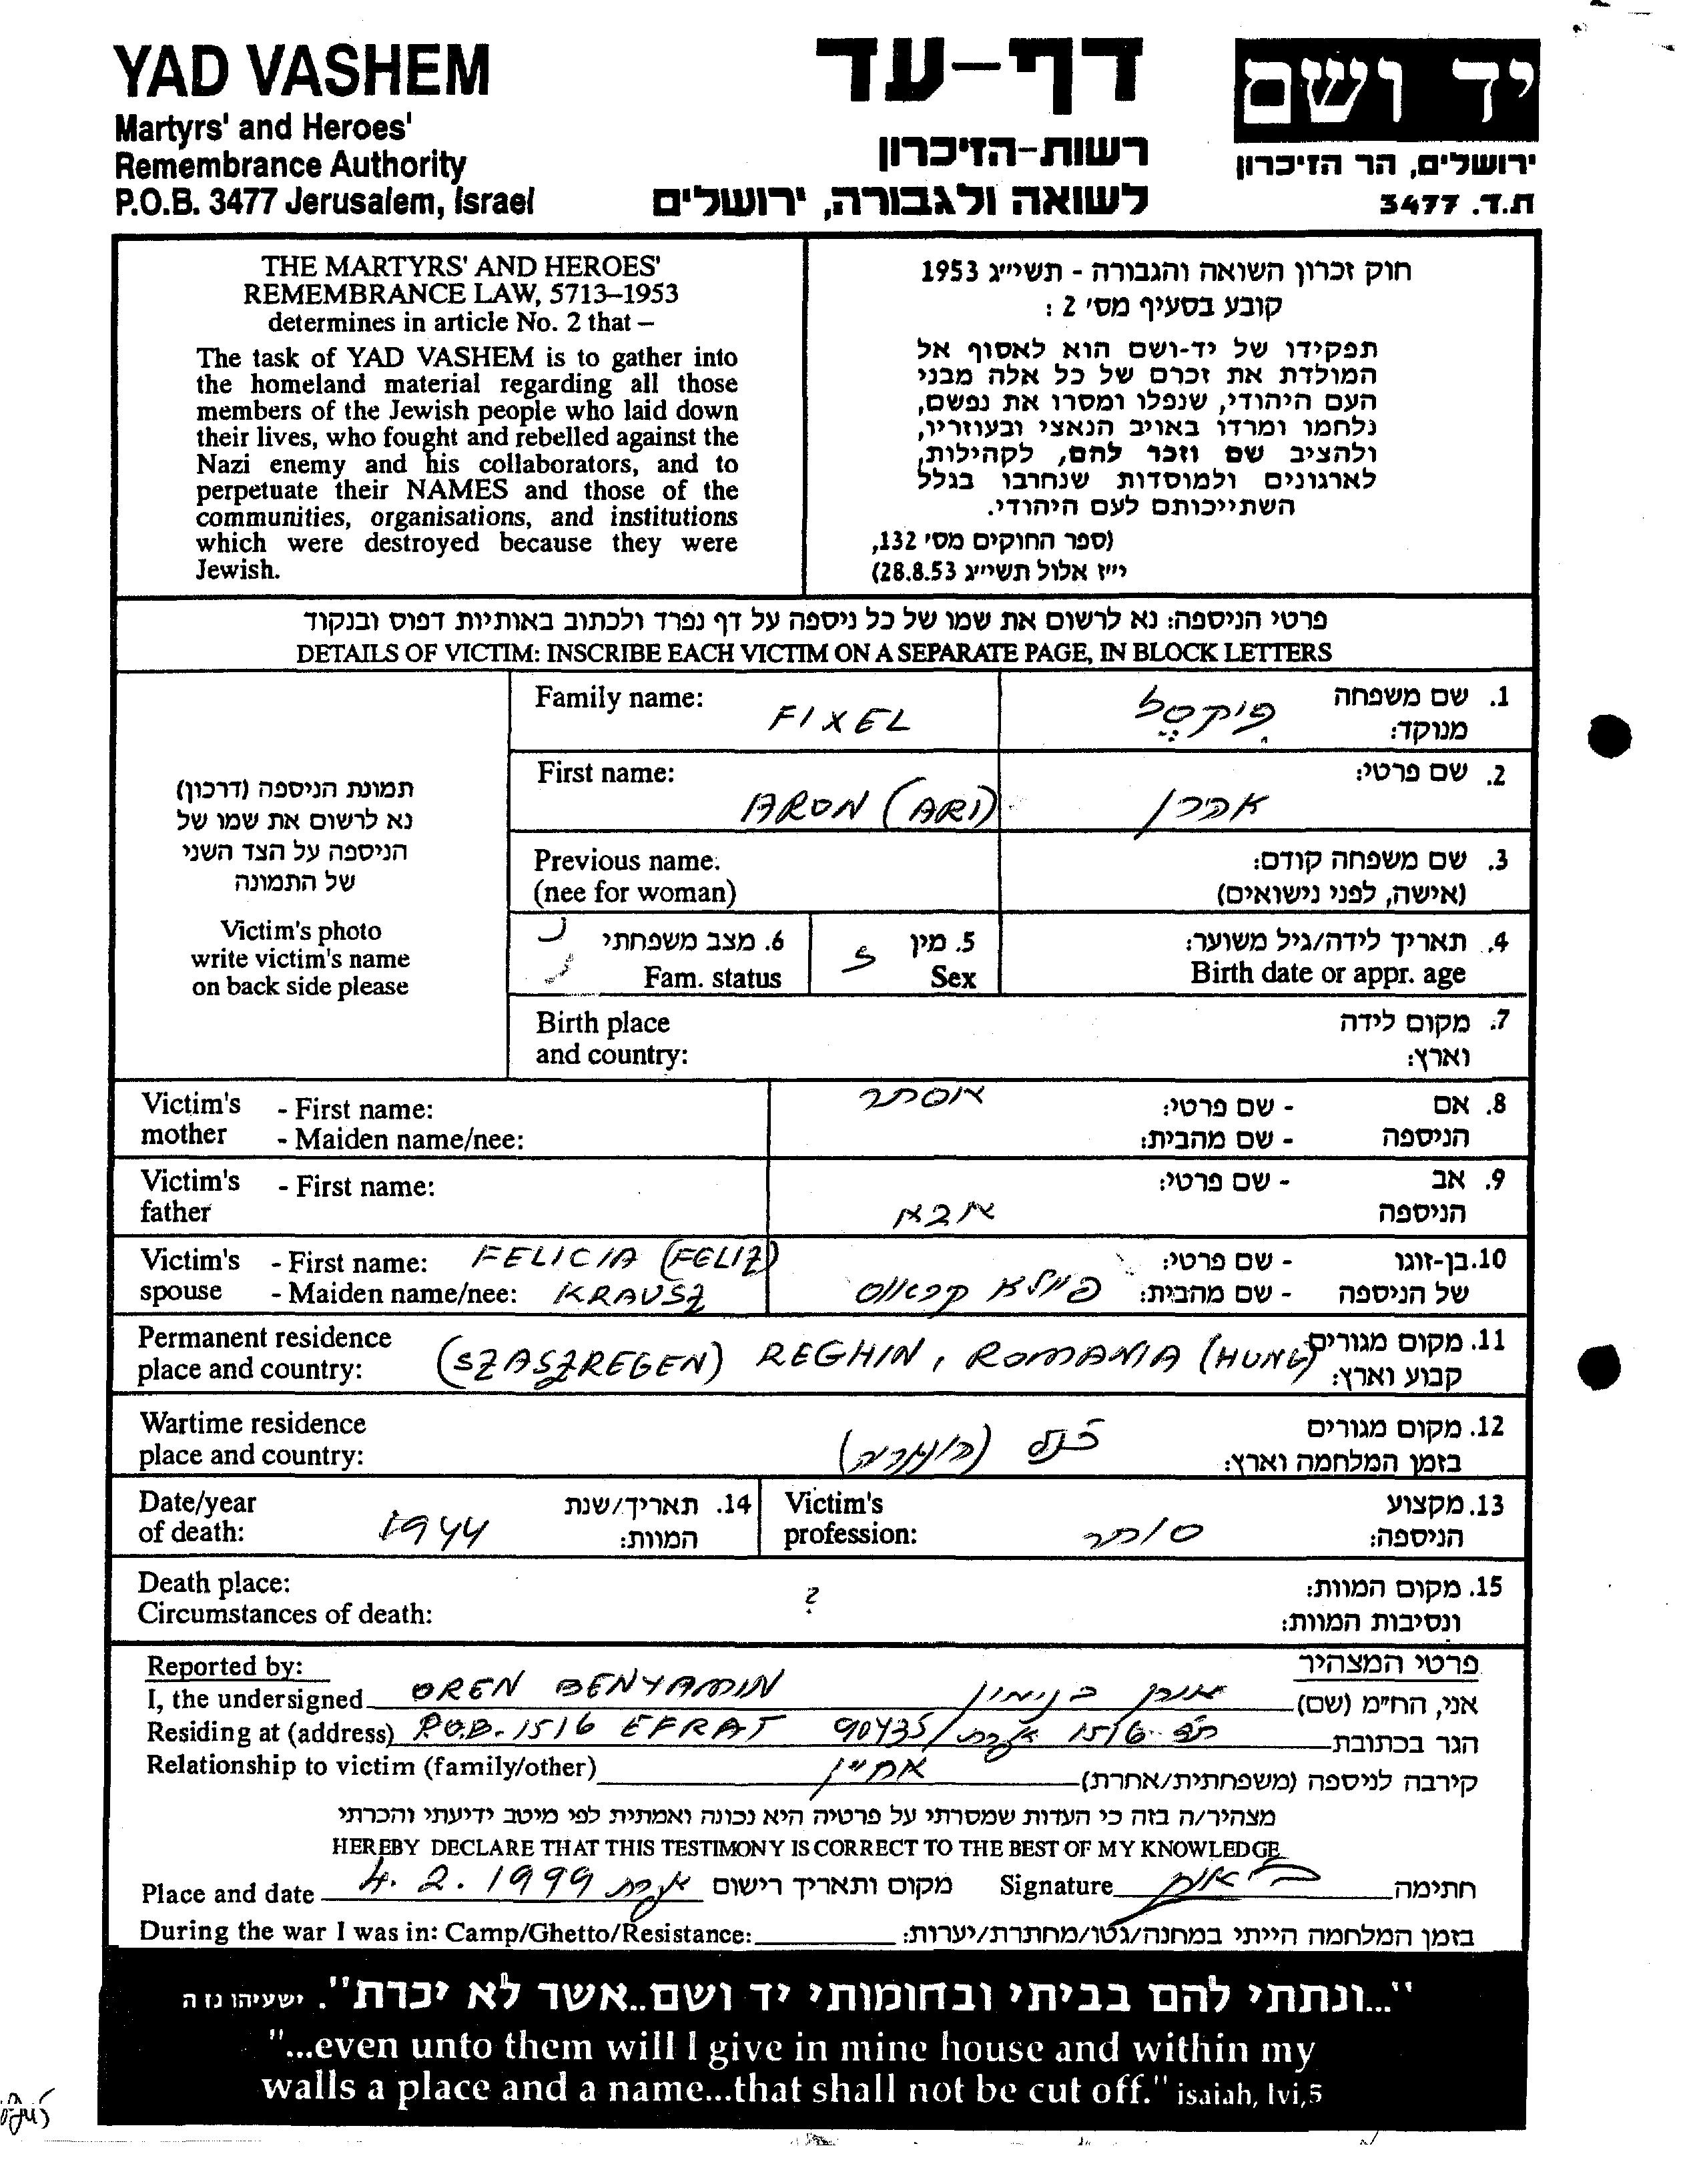 YAD VASHEM
Martyrs' and Heroes'
Remembrance Authority
P.O.B. 3477 Jerusalem, Israel
דף-עד
רשות-הזיכרון
לשואה ולגבורה, ירושלים
יד ושם
ירושלים, הר הזיכרון
ת.ד. 3477
THE MARTYRS' AND HEROES'
REMEMBRANCE LAW, 5713–1953
determines in article No. 2 that –
The task of YAD VASHEM is to gather into
the homeland material regarding all those
members of the Jewish people who laid down
their lives, who fought and rebelled against the
Nazi enemy and his collaborators, and to
perpetuate their NAMES and those of the
communities, organisations, and institutions
which were destroyed because they were
Jewish.
חוק זכרון השואה והגבורה - תשי״ג 1953
קובע בסעיף מס׳ 2 :
תפקידו של יד-ושם הוא לאסוף אל
המולדת את זכרם של כל אלה מבני
העם היהודי, שנפלו ומסרו את נפשם,
נלחמו ומרדו באויב הנאצי ובעוזריו,
ולהציב שם וזכר להם, לקהילות,
לארגונים ולמוסדות שנחרבו בגלל
השתייכותם לעם היהודי.
(ספר החוקים מס׳ 132,
י״ז אלול תשי״ג 28.8.53)
פרטי הניספה: נא לרשום את שמו של כל ניספה על דף נפרד ולכתוב באותיות דפוס ובנקוד
DETAILS OF VICTIM: INSCRIBE EACH VICTIM ON A SEPARATE PAGE, IN BLOCK LETTERS
תמונת הניספה (דרכון)
נא לרשום את שמו של
הניספה על הצד השני
של התמונה
Victim's photo
write victim's name
on back side please
Family name: FIXEL פיקסל 1. שם משפחה
מנוקד:
First name: ARON (ARI) אהרן 2. שם פרטי:
Previous name. 3. שם משפחה קודם:
(nee for woman) (אישה, לפני נישואים)
נ 6. מצב משפחתי ז 5. מין 4. תאריך לידה/גיל משוער:
Fam. status Sex Birth date or appr. age
Birth place 7. מקום לידה
and country: וארץ:
Victim's - First name: אסתר - שם פרטי: 8. אם
mother - Maiden name/nee: - שם מהבית: הניספה
Victim's - First name: - שם פרטי: 9. אב
father אבא הניספה
Victim's - First name: FELICIA (FELIZ) - שם פרטי: 10. בן-זוגו
spouse - Maiden name/nee: KRAUSZ פיילא קראוס - שם מהבית: של הניספה
Permanent residence 11. מקום מגורים
place and country: (SZASZREGEN) REGHIN, ROMANIA (HUNG) קבוע וארץ:
Wartime residence 12. מקום מגורים
place and country: כנ״ל (הונגריה) בזמן המלחמה וארץ:
Date/year 14. תאריך/שנת Victim's 13. מקצוע
of death: 1944 המוות: profession: סוחר הניספה:
Death place: ? 15. מקום המוות:
Circumstances of death: ונסיבות המוות:
Reported by: פרטי המצהיר
I, the undersigned OREN BENYAMIN אורן בנימין אני, הח״מ (שם)
Residing at (address) P.O.B. 1516 EFRAT 90435 ת״ד 1516 אפרת הגר בכתובת
Relationship to victim (family/other) אחיין קירבה לניספה (משפחתית/אחרת)
מצהיר/ה בזה כי העדות שמסרתי על פרטיה היא נכונה ואמתית לפי מיטב ידיעתי והכרתי
HEREBY DECLARE THAT THIS TESTIMONY IS CORRECT TO THE BEST OF MY KNOWLEDGE
Place and date 4. 2. 1999 אפרת מקום ותאריך רישום Signature חתימה
During the war I was in: Camp/Ghetto/Resistance: בזמן המלחמה הייתי במחנה/גטו/מחתרת/יערות:
"...ונתתי להם בביתי ובחומותי יד ושם..אשר לא יכרת". ישעיהו נו ה
"...even unto them will I give in mine house and within my
walls a place and a name...that shall not be cut off." isaiah, lvi,5